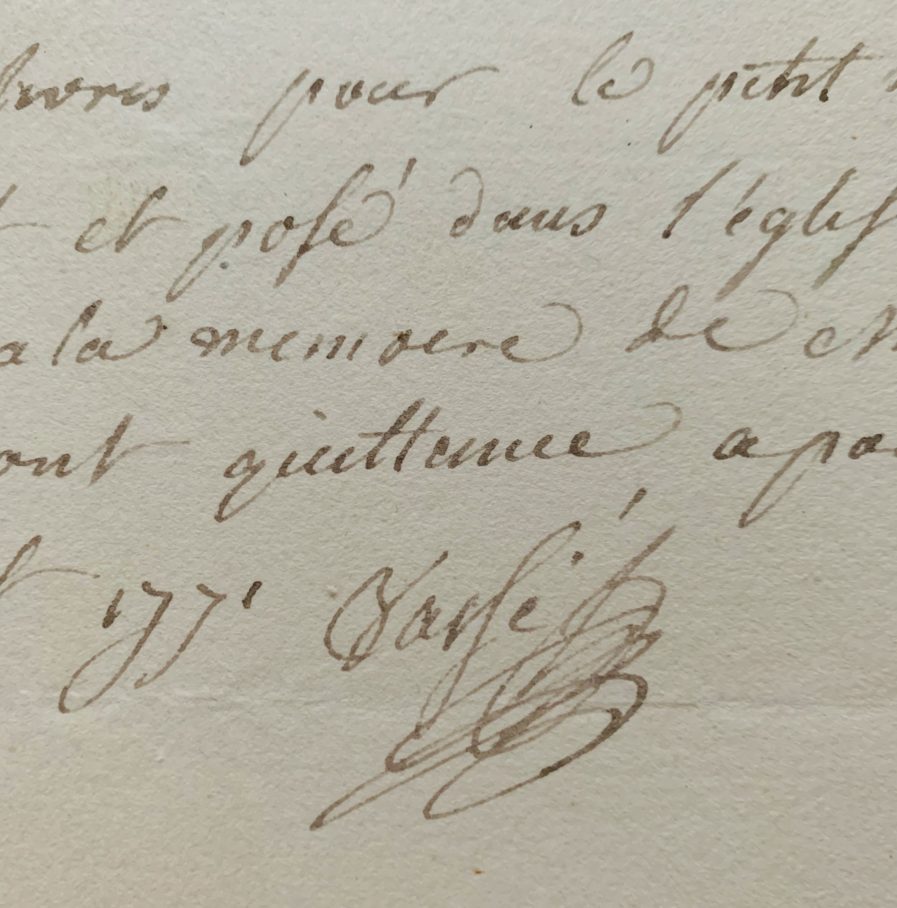 livres pour le petit
et posé dans l'églis
a la memoere de
ont quittence a pa
1771 Vassé